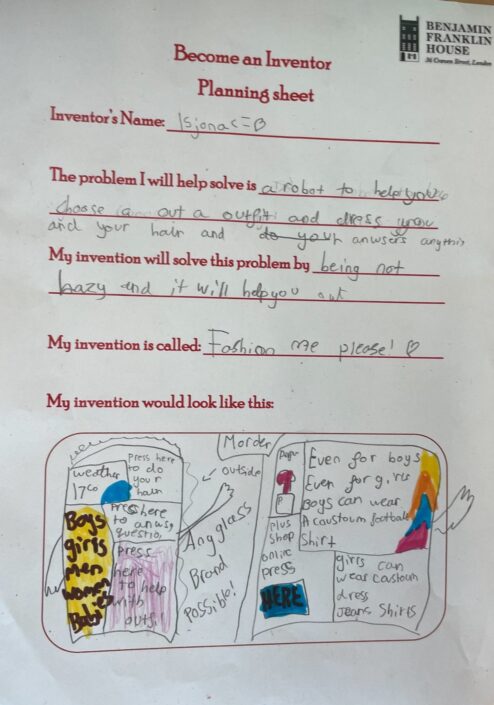 BENJAMIN
FRANKLIN
HOUSE
36 Craven Street, London
Become an Inventor
Planning sheet
Inventor's Name:
The problem I will help solve is a robot to help you
choose a out a outfit and dress you
and your hair and do your anwsers anything
My invention will solve this problem by being not
Lazy and it will help you out
My invention is called: Fashion me please!
My invention would look like this:
weather
17co
press here
to do
your
hair
Press here
to anwsq
questio,
Boys
girls
men
women
Babies
Press
here
to help
with
outfi
outside
Any glass
Brand
Possible!
Morder
paper
P
Plus
Shop
online
press
HERE
Even for boys
Even for girls
Boys can wear
A caustoum football
Shirt
girls can
wear caustoum
dress
Jeans Shirts